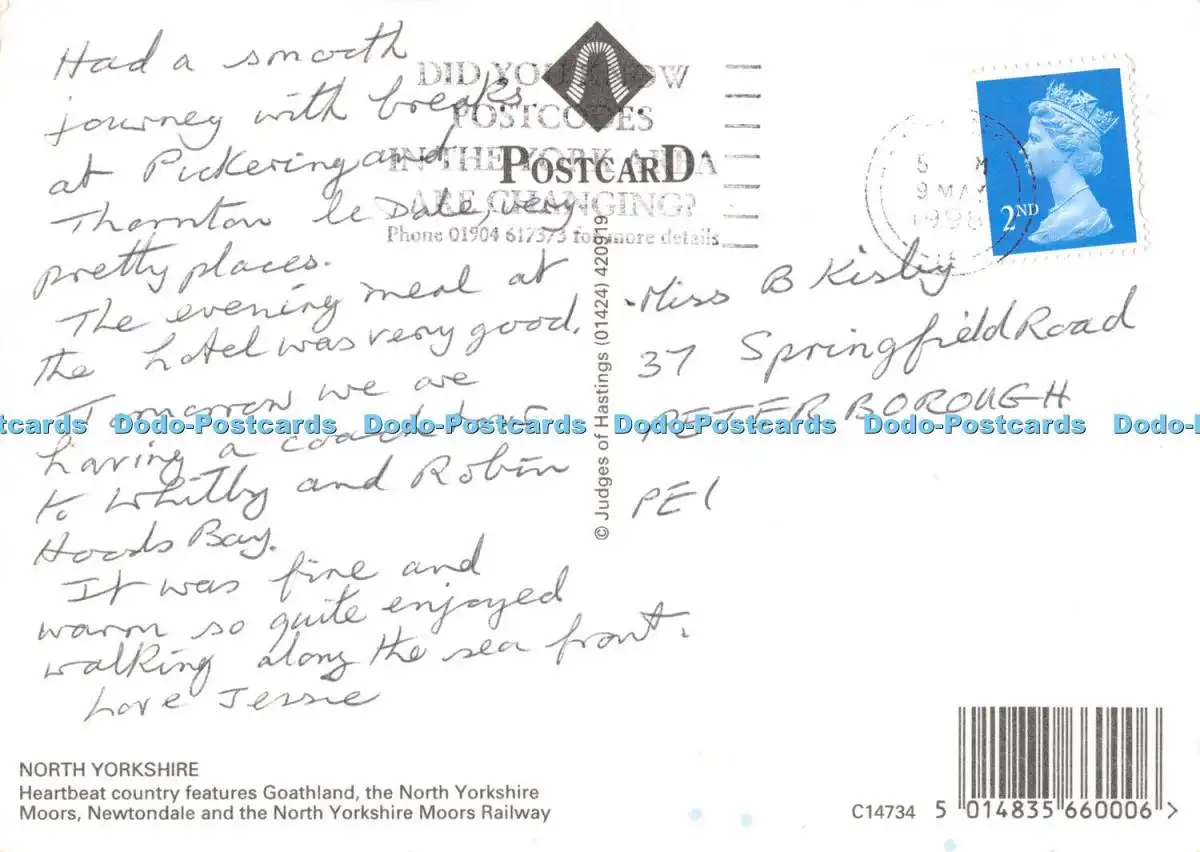 Had a smooth
journey with breaks
at Pickering and
Thornton le Dale, very
pretty places.
The evening meal at
the hotel was very good.
Tomorrow we are
having a coach tour
to Whitby and Robin
Hoods Bay.
It was fine and
warm so quite enjoyed
walking along the sea front.
Love Jessie
DID YOU KNOW
POSTCODES
IN THE YORK AREA
ARE CHANGING?
Phone 01904 617373 for more details
POSTCARD
© Judges of Hastings (01424) 420919
9 MAY
1998
2ND
Miss B Kisby
37 Springfield Road
PETERBOROUGH
PE1
Dodo-Postcards Dodo-Postcards Dodo-Postcards Dodo-Postcards
NORTH YORKSHIRE
Heartbeat country features Goathland, the North Yorkshire
Moors, Newtondale and the North Yorkshire Moors Railway
C14734
5 014835 660006 >